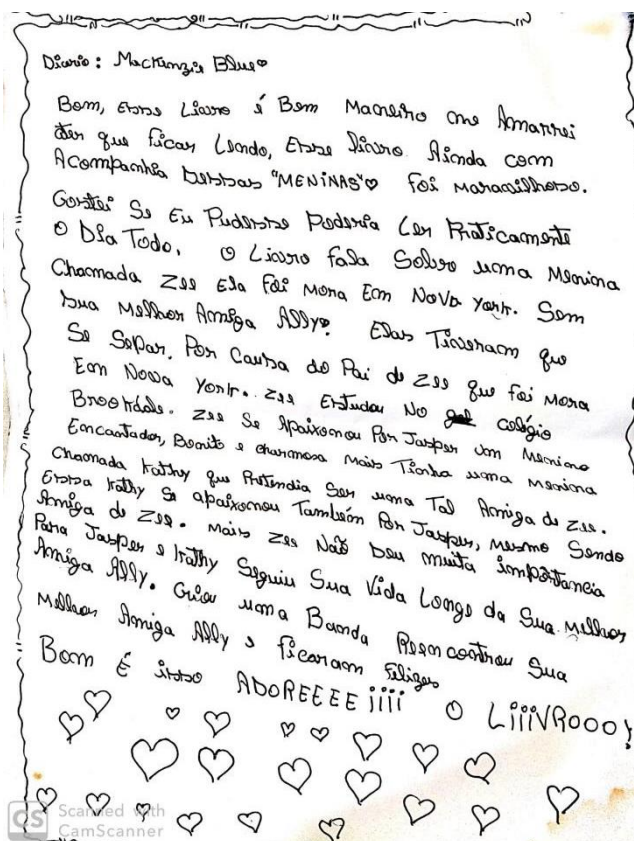 Diario: Mackenzie Blue♡
Bom, Esse Livro é Bem Maneiro me Amarrei
ter que ficar Lendo, Esse livro. Ainda com
Acompanhia dessas "MENINAS"♡ foi maravilhoso.
Gostei Se Eu Pudesse Poderia Ler Praticamente
o Dia Todo. O Livro fala Sobre uma Menina
Chamada Zee Ela foi Mora Em Nova York. Sem
sua Melhor Amiga Ally♡. Elas Tiveram que
Se Separ. Por Causa do Pai de Zee que foi Mora
Em Nova York. Zee Estudou No colégio
Brookdale. Zee Se Apaixonou Por Jasper um Menino
Encantador, Bonito e charmoso mais Tinha uma menina
Chamada Kathy que Pretendia Ser uma Tal Amiga de Zee.
Essa Kathy Se apaixonou Também Por Jasper, mesmo Sendo
Amiga de Zee. Mais Zee Não Deu muita importancia
Para Jasper e Kathy Seguiu Sua Vida Longe da Sua Melhor
Amiga Ally. Criou uma Banda Reencontrou Sua
Melhor Amiga Ally e ficaram felizes
Bom É isso ADOREEEEiiii o LiiiVROOO!
CS Scanned with
CamScanner